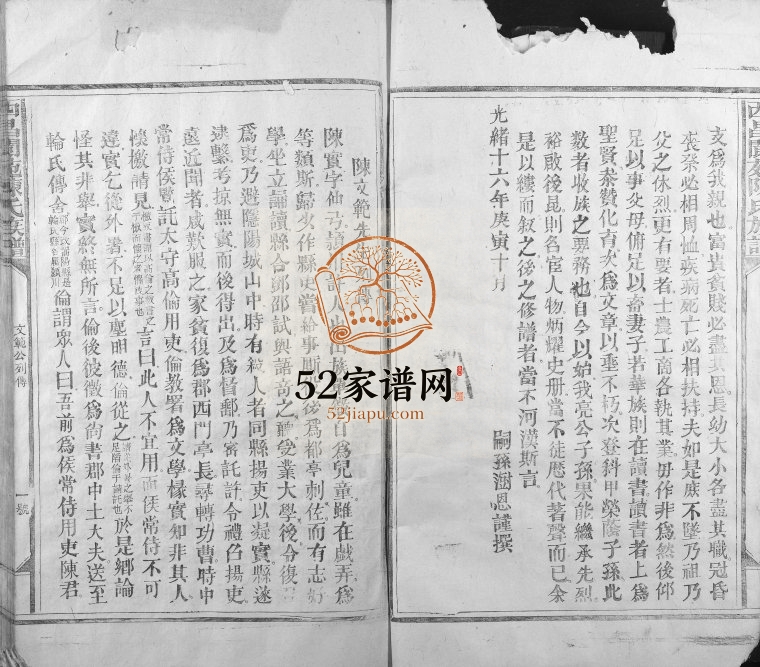 支為我親也富貴貧賤必盡其恩長幼大小各盡其職冠昏
喪祭必相周恤疾病死亡必相扶持夫如是庶不墜乃祖乃
父之休烈更有要者士農工商各執其業毋作非為然後仰
足以事父母俯足以畜妻子若華族則在讀書讀書者上為
聖賢叅贊化育次為文章以垂不朽次登科甲榮蔭子孫此
數者收族之要務也自今以始我亮公子孫果能繼承先烈
裕啟後昆則名宦人物炳耀史册當不徒歷代著聲而已余
是以縷而叙之後之修譜者當不河漢斯言
光緒十六年庚寅十月
嗣孫澍恩謹撰
陳文範先生列傳
陳寔字仲弓潁川許人也出 自為兒童雖在戲弄為
等類所歸少作縣吏常給事廝役後為都亭刺佐而有志好
學坐立誦讀縣令鄧邵試與語奇之聽受業大學後令復召
為吏乃避隱陽城山中時有殺人者同縣揚吏以疑寔縣遂
逮繫考掠無實而後得出及為督郵乃密託許令禮召揚吏
遠近聞者咸歎服之家貧復為郡西門亭長尋轉功曹時中
常侍侯覽託太守高倫用吏倫教署為文學掾寔知非其人
懷檄請見 言曰此人不宜用而侯常侍不可
違寔乞從外署不足以塵明德倫從之 於是鄉論
怪其非舉寔終無所言倫後被徵為尚書郡中士大夫送至
輪氏傳舍 倫謂眾人曰吾前為侯常侍用吏陳君
文範公列傳
一號
西昌 陳氏族譜
52家谱网
52jiapu.com